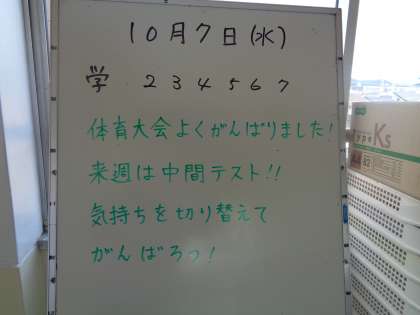 10月7日(水)
学 2 3 4 5 6 7
体育大会よくがんばりました!
来週は中間テスト!!
気持ちを切り替えて
がんばろっ!
Ks